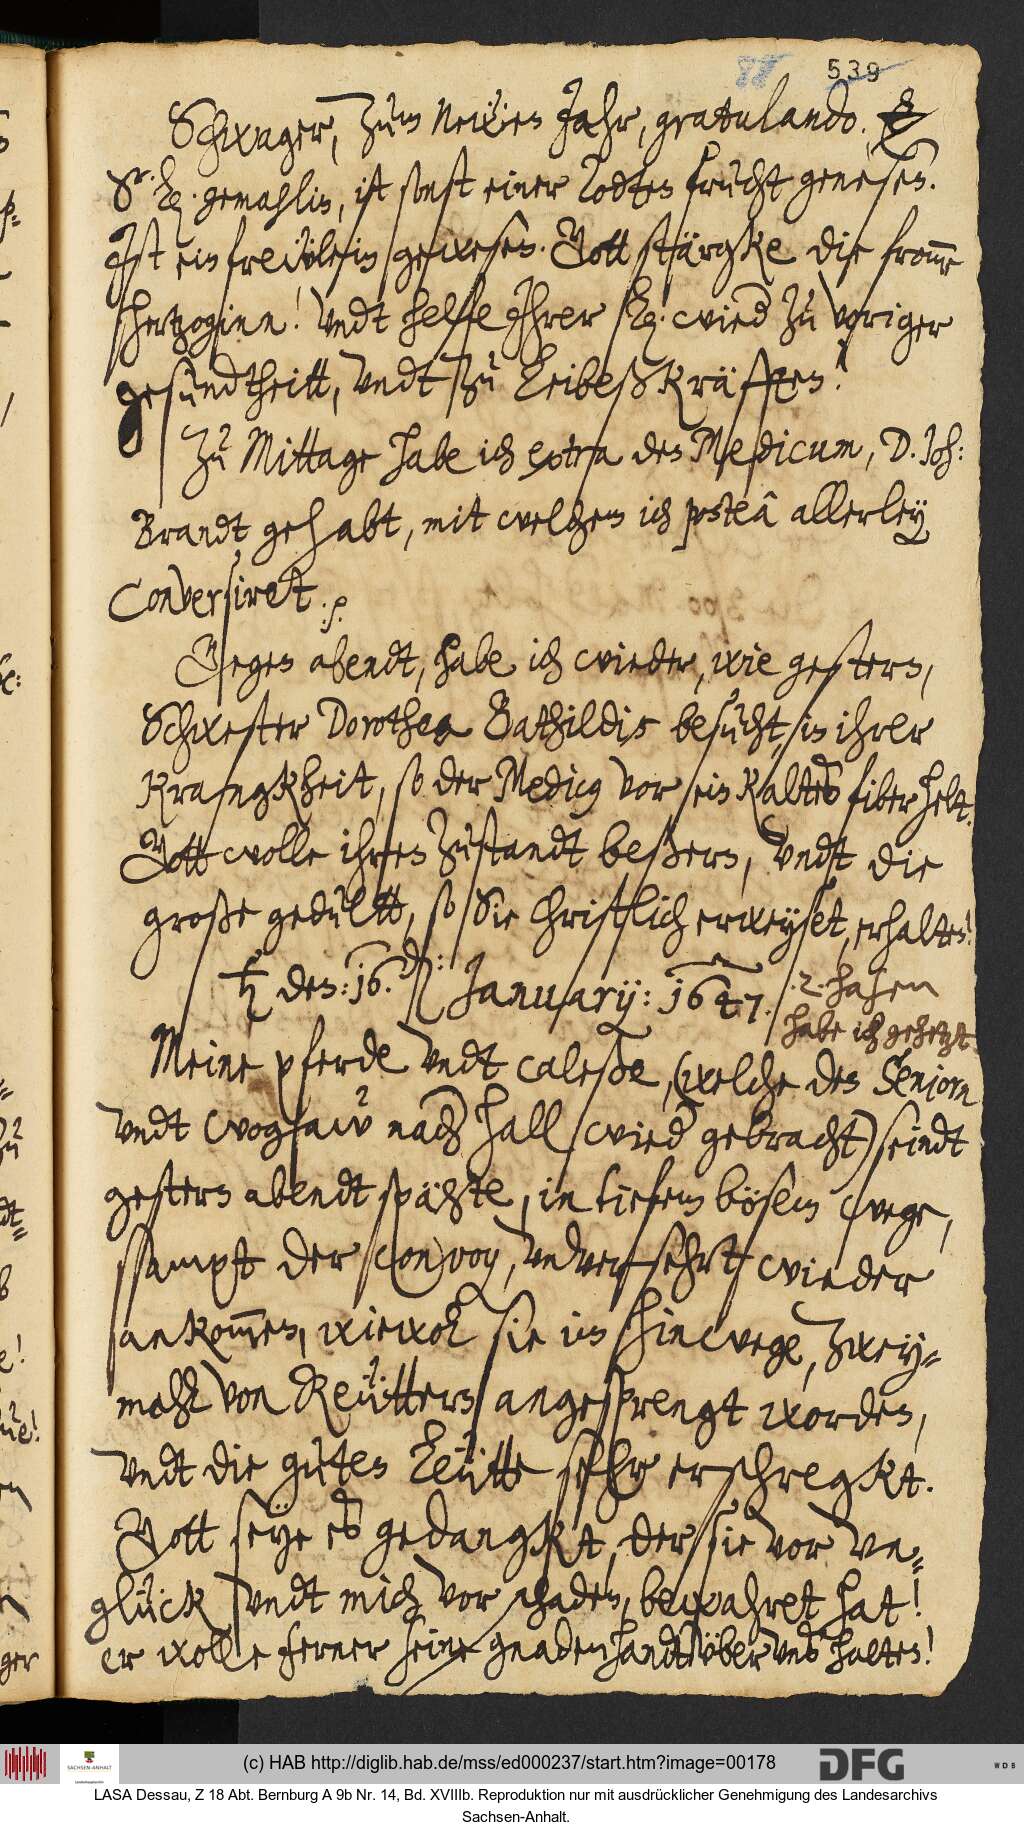 88 539
Schwager, zum Neẅen Jahr, gratulando. &
Sr. Ld. gemahlin, ist sonst einer Todten frucht genesen.
Ist ein freẅlein gewesen. Gott stärgke die fromme
hertzoginn! vndt helffe Ihrer Ld. wied zu voriger
gesundtheitt, vndt zu LeibeßKräfften!
Zu Mittage habe ich extra den Medicum, D. Joh:
Brandt gehabt, mit welchem ich posteâ allerley
Conversiret. p.
Gegen abendt, habe ich wieder, wie gestern,
Schwester Dorothea Bathildis besucht, in ihrer
Krangkheit, so der Medicus vor ein Kaltes fiber helt.
Gott wolle ihren zustandt beßern, vndt die
große gedultt, so Sie Christlich erweyset, erhalten!
♄ den: 16. den: January: 1647.
.2. hasen
habe ich gehetzt.
Meine pferde vndt caleße, (welche den Seniorn
vndt Wogsaw nach Hall wied gebracht) seindt
gestern abendt spähte, in tiefem bösem wege,
sampt der Con)voy, vnversehrt wieder
ankommen, wiewol sie im hinwege, zwey-
mahl von Reüttern angesprengt worden,
vndt die guten Leütte sehr erschregkt.
Gott seye es gedangkt, der sie vor vn-
glück vndt mich vor schaden, bewahret hat!
er wolle ferner seine gnadenhandt über vns halten!
(c) HAB http://diglib.hab.de/mss/ed000237/start.htm?image=00178
SACHSEN-ANHALT
DFG
WDB
LASA Dessau, Z 18 Abt. Bernburg A 9b Nr. 14, Bd. XVIIIb. Reproduktion nur mit ausdrücklicher Genehmigung des Landesarchivs
Sachsen-Anhalt.